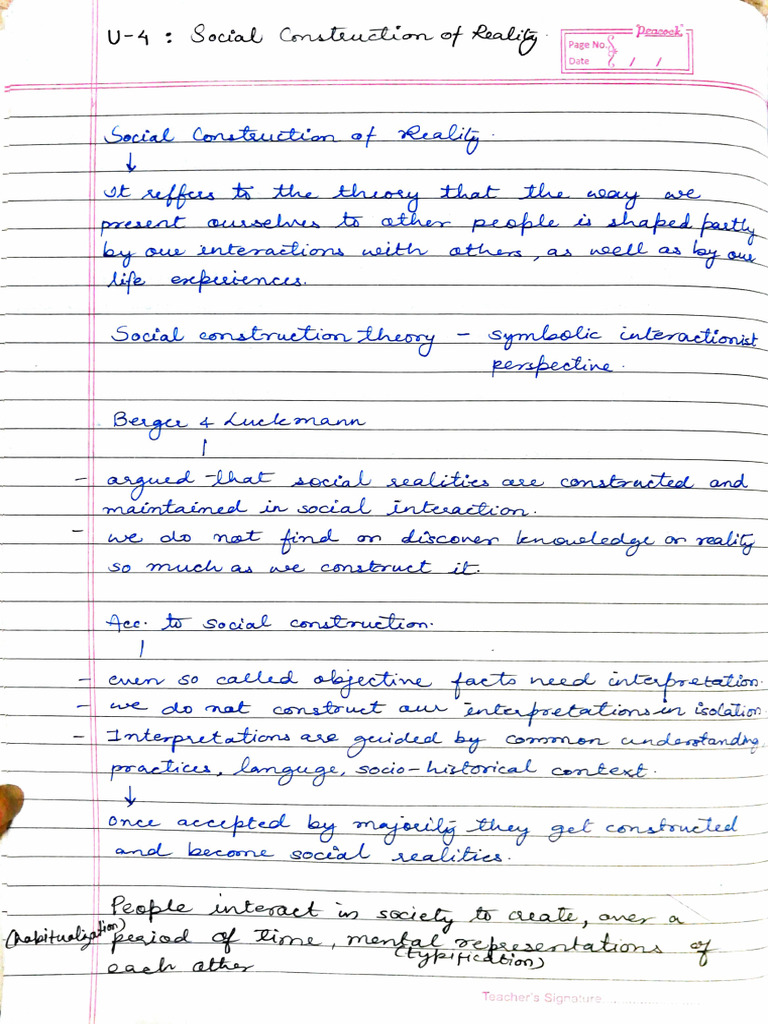 U-4 : Social Construction of Reality.
Peacock
Page No.
Date / /
Social Construction of Reality.
↓
It reffers to the theory that the way we
present ourselves to other people is shaped partly
by our interactions with others, as well as by our
life experiences.
Social construction theory – symbolic interactionist
perspective.
Berger & Luckmann
- argued that social realities are constructed and
maintained in social interaction.
- we do not find or discover knowledge or reality
so much as we construct it.
Acc. to social construction.
- even so called objective facts need interpretation.
- we do not construct our interpretations in isolation.
- Interpretations are guided by common understanding,
practices, languge, socio-historical context.
↓
once accepted by majority they get constructed
and become social realities.
People interact in society to create, over a
(habitualization) period of time, mental representations of
each other (typification)
Teacher's Signature